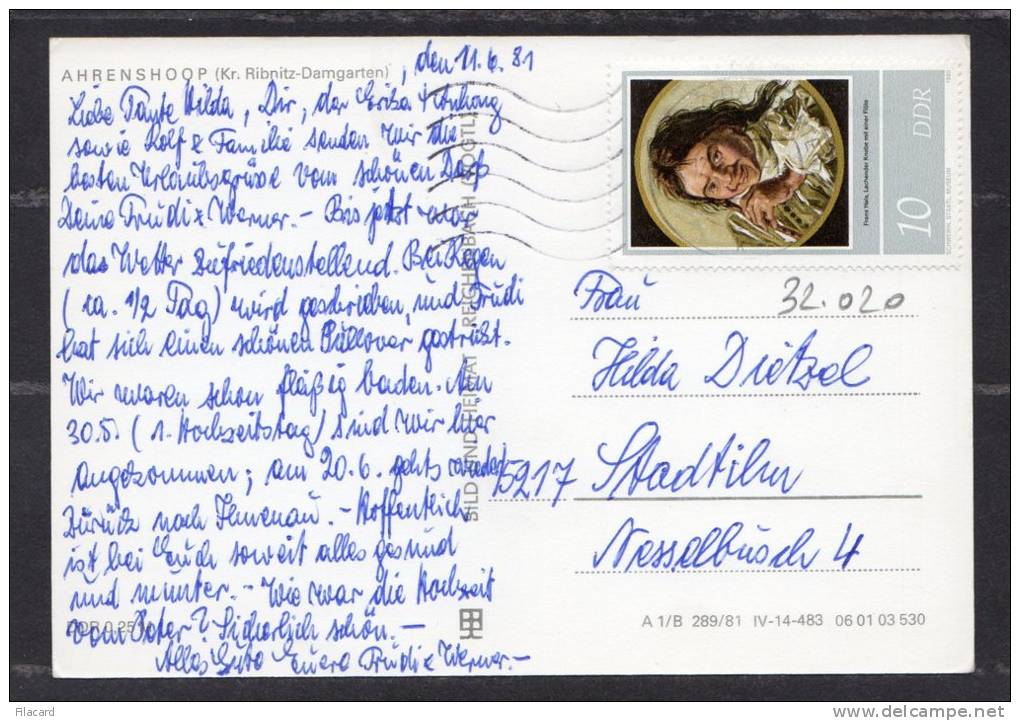 AHRENSHOOP (Kr. Ribnitz-Damgarten)
, den 11.6.81
Liebe Tante Hilda, Dir, der Erika + Anhang
sowie Rolf & Familie senden wir die
besten Urlaubsgrüße vom schönen Darß
Deine Trudi & Werner. – Bis jetzt war
das Wetter zufriedenstellend. Bei Regen
(ca. 1/2 Tag) wird geschrieben, und Trudi
hat sich einen schönen Pullover gestrickt.
Wir waren schon fleißig baden. Am
30.5. (1. Hochzeitstag) sind wir hier
angekommen; am 20.6. gehts wieder
zurück nach Ilmenau. – Hoffentlich
ist bei Euch soweit alles gesund
und munter. – Wie war die Hochzeit
vom Peter? Sicherlich schön. –
Alles Gute Eure Trudi & Werner. –
DDR 0,25 M
BILD UND HEIMAT REICHENBACH (VOGTL)
Frans Hals, Lachender Knabe mit einer Flöte
10 DDR
SCHWERIN, STAATL. MUSEUM
1980
Frau
32.020
Hilda Dietzel
5217 Stadtilm
Nesselbusch 4
A 1/B 289/81 IV-14-483 06 01 03 530
Filacard
www.delcampe.net